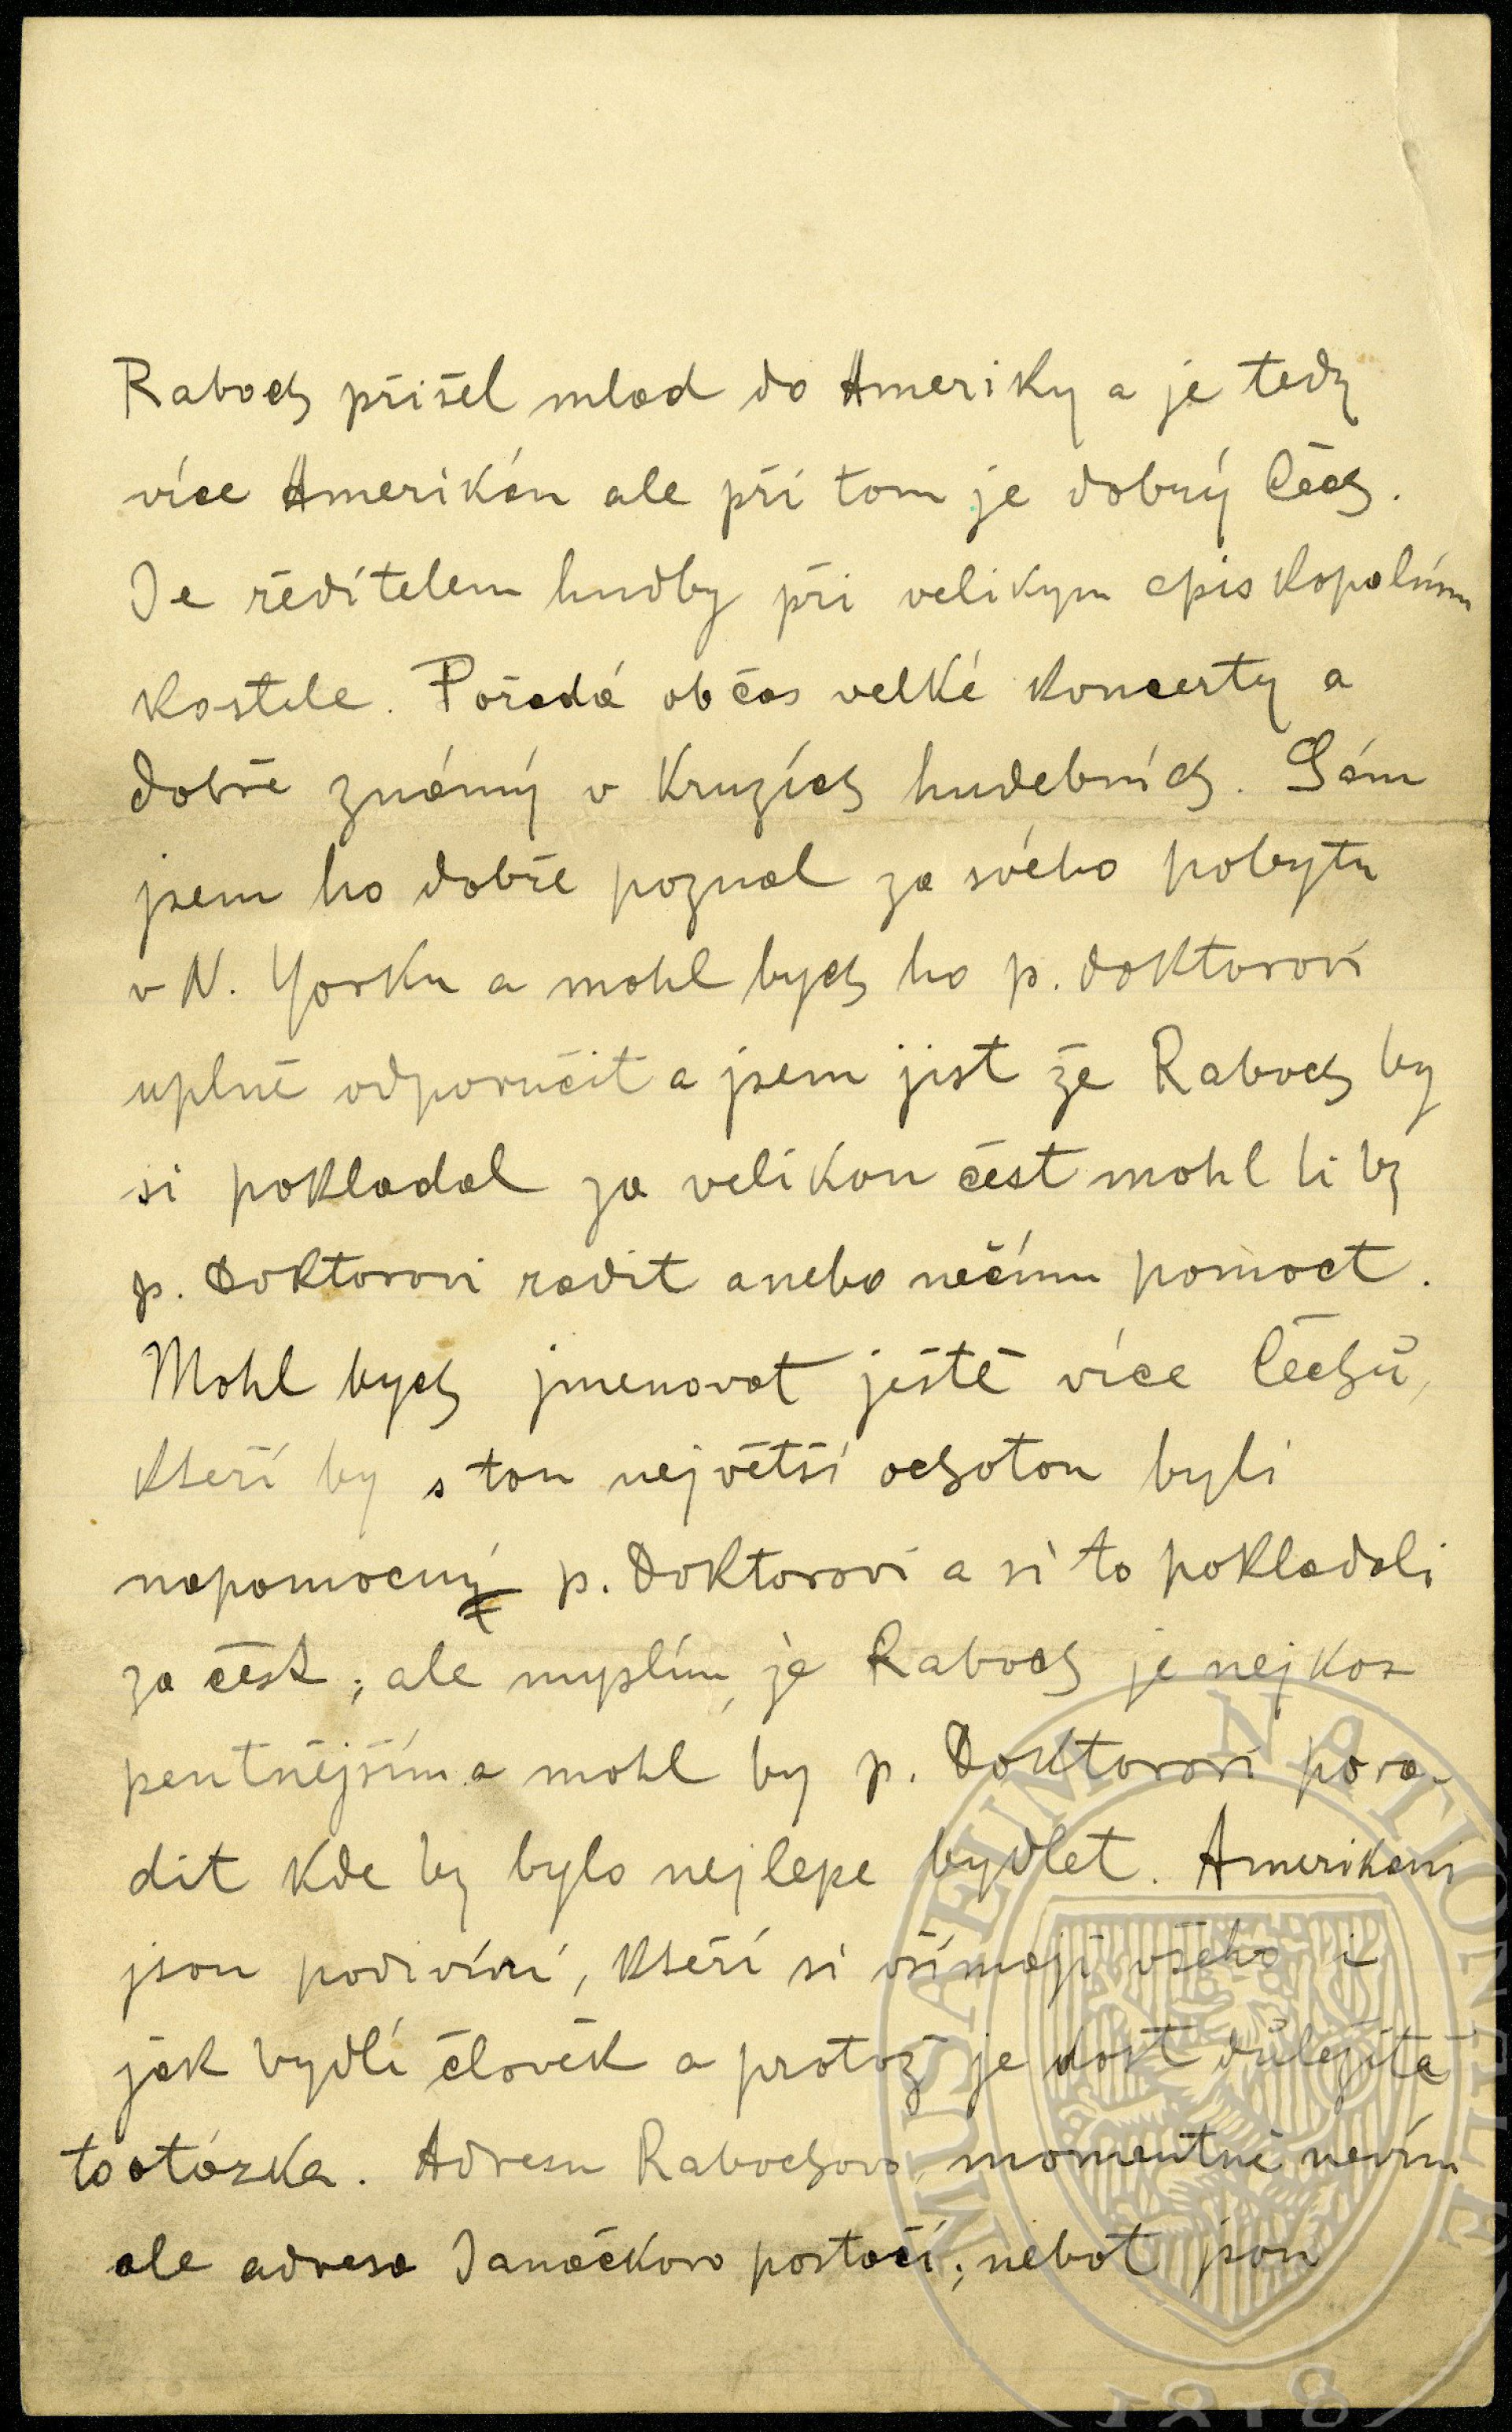 Raboch přišel mlad do Ameriky a je tedy
více Amerikán ale při tom je dobrý Čech.
Je ředitelem hudby při velikym episkopalním
kostele. Pořadá občas velké koncerty a
dobře známý v kruzích hudebních. Sám
jsem ho dobře poznal za svého pobytu
v N. Yorku a mohl bych ho p. doktorovi
uplně odporučit a jsem jist že Raboch by
si pokladal za velikou čest mohl li by
p. Doktorovi radit anebo nečímu pomoct.
Mohl bych jmenovat ještě více Čechů,
kteří by s tou největší ochotou byli
napomocny p. Doktorovi a si to pokladali
za čest; ale myslím, že Raboch je nejkom
pentnějsím a mohl by p. Doktorovi pora-
dit kde by bylo nejlepe bydlet. Amerikani
jsou podivíni, kteří si všímají všeho i
jak bydlí človék a protož je dost důležitá
ta otázka. Adresu Rabochovo momentně nevím
ale adresa Janačkovo postačí; nebot jsou
MUSAEUM NATIONALE
1818